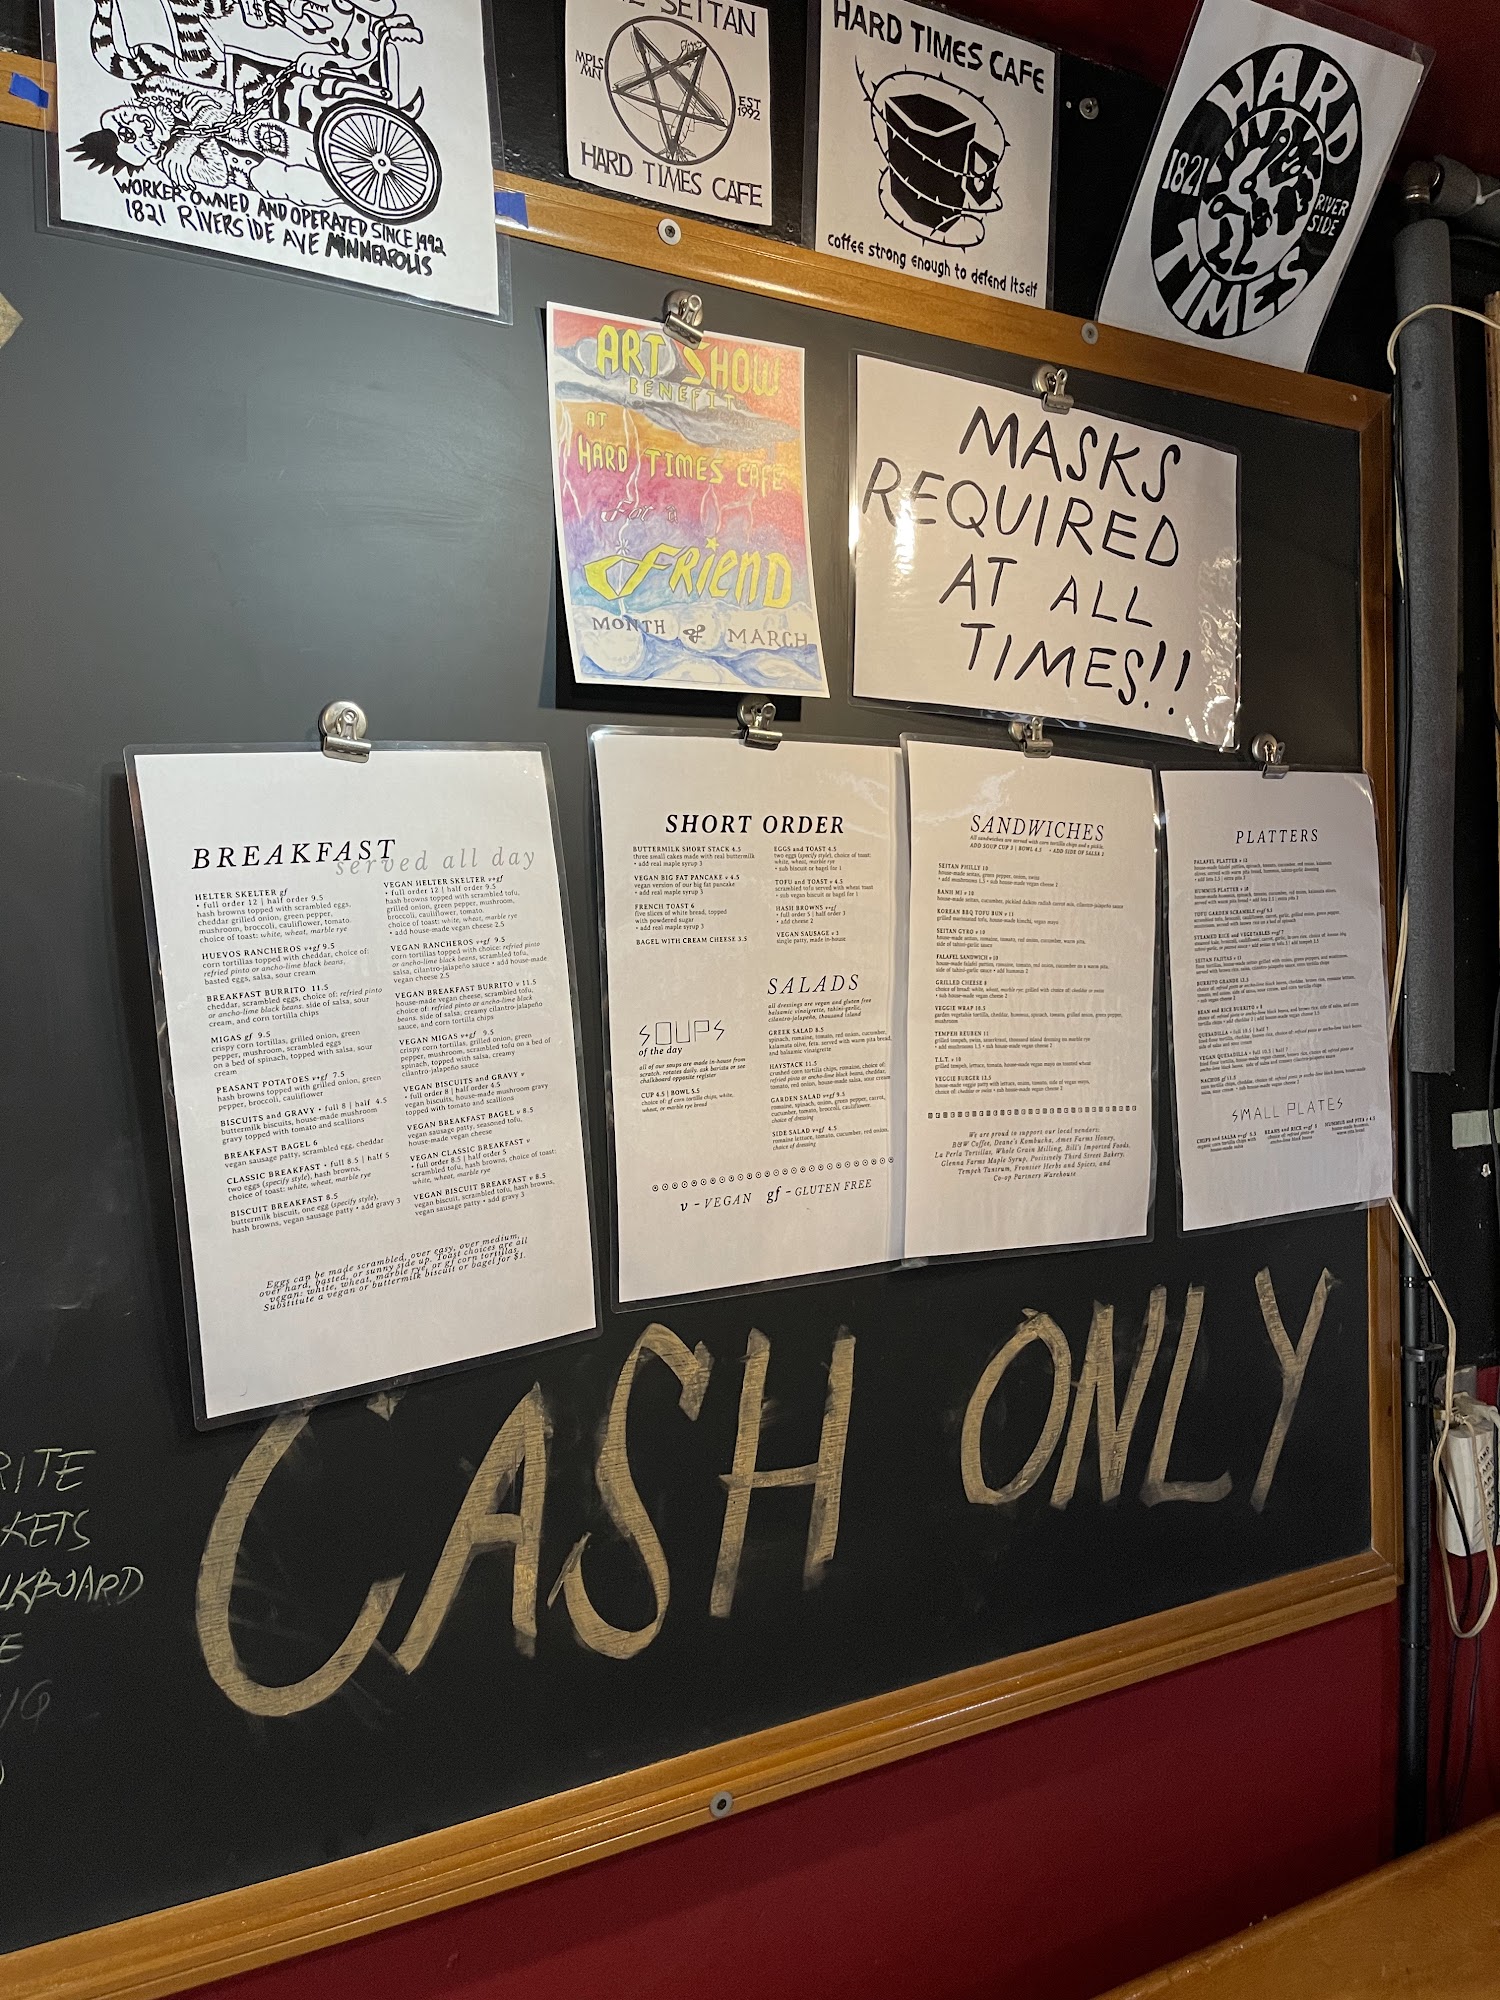 WORKER OWNED AND OPERATED SINCE 1992
1821 RIVERSIDE AVE MINNEAPOLIS
SEITAN
MPLS
MN
EST
1992
HARD TIMES CAFE
HARD TIMES CAFE
coffee strong enough to defend itself
HARD
1821
RIVER
SIDE
TIMES
ART SHOW
BENEFIT
AT
HARD TIMES CAFE
For a
FRIEND
MONTH of MARCH
MASKS
REQUIRED
AT ALL
TIMES!!
BREAKFAST
served all day
HELTER SKELTER gf
• full order 12 | half order 9.5
hash browns topped with scrambled eggs,
cheddar grilled onion, green pepper,
mushroom, broccoli, cauliflower, tomato.
choice of toast: white, wheat, marble rye
HUEVOS RANCHEROS v•gf 9.5
corn tortillas topped with cheddar, choice of:
refried pinto or ancho-lime black beans,
basted eggs, salsa, sour cream
BREAKFAST BURRITO 11.5
cheddar, scrambled eggs, choice of: refried pinto
or ancho-lime black beans. side of salsa, sour
cream, and corn tortilla chips
MIGAS gf 9.5
crispy corn tortillas, grilled onion, green
pepper, mushroom, scrambled eggs
on a bed of spinach, topped with salsa, sour
cream
PEASANT POTATOES v•gf 7.5
hash browns topped with grilled onion, green
pepper, broccoli, cauliflower
BISCUITS and GRAVY • full 8 | half 4.5
buttermilk biscuits, house-made mushroom
gravy topped with tomato and scallions
BREAKFAST BAGEL 6
vegan sausage patty, scrambled egg, cheddar
CLASSIC BREAKFAST • full 8.5 | half 5
two eggs (specify style), hash browns,
choice of toast: white, wheat, marble rye
BISCUIT BREAKFAST 8.5
buttermilk biscuit, one egg (specify style),
hash browns, vegan sausage patty • add gravy 3
VEGAN HELTER SKELTER v•gf
• full order 12 | half order 9.5
hash browns topped with scrambled tofu,
grilled onion, green pepper, mushroom,
broccoli, cauliflower, tomato.
choice of toast: white, wheat, marble rye
• add house-made vegan cheese 2.5
VEGAN RANCHEROS v•gf 9.5
corn tortillas topped with choice of: refried pinto
or ancho-lime black beans, scrambled tofu,
salsa, cilantro-jalapeño sauce • add house-made
vegan cheese 2.5
VEGAN BREAKFAST BURRITO v 11.5
house-made vegan cheese, scrambled tofu,
choice of: refried pinto or ancho-lime black
beans. side of salsa, creamy cilantro-jalapeño
sauce, and corn tortilla chips
VEGAN MIGAS v•gf 9.5
crispy corn tortillas, grilled onion, green
pepper, mushroom, scrambled tofu on a bed of
spinach, topped with salsa, creamy
cilantro-jalapeño sauce
VEGAN BISCUITS and GRAVY v
• full order 8 | half order 4.5
vegan biscuits, house-made mushroom gravy
topped with tomato and scallions
VEGAN BREAKFAST BAGEL v 8.5
vegan sausage patty, seasoned tofu,
house-made vegan cheese
VEGAN CLASSIC BREAKFAST v
• full order 8.5 | half order 5
scrambled tofu, hash browns, choice of toast:
white, wheat, marble rye
VEGAN BISCUIT BREAKFAST v 8.5
vegan biscuit, scrambled tofu, hash browns,
vegan sausage patty • add gravy 3
Eggs can be made scrambled, over easy, over medium,
over hard, basted, or sunny side up. Toast choices are all
vegan: white, wheat, marble rye, or gf corn tortillas.
Substitute a vegan or buttermilk biscuit or bagel for $1.
SHORT ORDER
BUTTERMILK SHORT STACK 4.5
three small cakes made with real buttermilk
• add real maple syrup 3
VEGAN BIG FAT PANCAKE v 4.5
vegan version of our big fat pancake
• add real maple syrup 3
FRENCH TOAST 6
five slices of white bread, topped
with powdered sugar
• add real maple syrup 3
BAGEL WITH CREAM CHEESE 3.5
EGGS and TOAST 4.5
two eggs (specify style), choice of toast:
white, wheat, marble rye
• sub biscuit or bagel for 1
TOFU and TOAST v 4.5
scrambled tofu served with wheat toast
• sub biscuit or bagel for 1
HASH BROWNS v•gf
• full order 5 | half order 3
• add cheese 2
VEGAN SAUSAGE v 3
single patty, made in-house
SOUPS
of the day
all of our soups are made in-house from
scratch. rotates daily. ask barista or see
chalkboard opposite register
CUP 4.5 | BOWL 5.5
choice of: corn tortilla chips, white,
wheat, or marble rye bread
SALADS
all dressings are vegan and gluten free
balsamic vinaigrette, tahini-garlic,
cilantro-jalapeño, thousand island
GREEK SALAD 8.5
spinach, romaine, tomato, red onion, cucumber,
kalamata olive, feta. served with warm pita bread,
and balsamic vinaigrette
HAYSTACK 11.5
crushed corn tortilla chips, romaine, choice of:
refried pinto or ancho-lime black beans, cheddar,
tomato, red onion, house-made salsa, sour cream
GARDEN SALAD v•gf 9.5
romaine, spinach, onion, green pepper, carrot,
cucumber, tomato, broccoli, cauliflower.
choice of dressing
SIDE SALAD v•gf 4.5
romaine lettuce, tomato, cucumber, red onion.
choice of dressing
v - VEGAN gf - GLUTEN FREE
SANDWICHES
All sandwiches are served with corn chips and a pickle.
ADD SOUP CUP 3 | BOWL 4.5 • ADD SIDE OF SALSA 2
SEITAN PHILLY 10
house-made seitan, green pepper, onion, swiss
• add mushrooms 1.5 • sub house-made vegan cheese 2
BANH MI v 10
house-made seitan, cucumber, pickled daikon radish carrot mix, cilantro-jalapeño sauce
KOREAN BBQ TOFU BUN v 11
grilled marinated tofu, house-made kimchi, vegan mayo
SEITAN GYRO v 10
house-made seitan, romaine, tomato, red onion, cucumber, warm pita,
side of tahini-garlic sauce
FALAFEL SANDWICH v 10
house-made falafel patties, romaine, tomato, red onion, cucumber on a warm pita,
side of tahini-garlic sauce • add hummus 2
GRILLED CHEESE 8
choice of bread: white, wheat, marble rye. grilled with choice of: cheddar or swiss
• sub house-made vegan cheese 2
VEGGIE WRAP 10.5
garden vegetable tortilla, cheddar, hummus, spinach, tomato, grilled onion, green pepper,
mushroom
TEMPEH REUBEN 11
grilled tempeh, swiss, sauerkraut, thousand island dressing on marble rye
• add mushrooms 1.5 • sub house-made vegan cheese 2
T.L.T. v 10
grilled tempeh, lettuce, tomato, house-made vegan mayo on toasted wheat
VEGGIE BURGER 12.5
house-made veggie patty with lettuce, onion, tomato, side of vegan mayo,
choice of: cheddar or swiss • sub house-made vegan cheese 2
We are proud to support our local vendors:
B&W Coffee, Deane's Kombucha, Ames Farms Honey,
La Perla Tortillas, Whole Grain Milling, Bill's Imported Foods,
Glenna Farms Maple Syrup, Positively Third Street Bakery,
Tempeh Tantrum, Frontier Herbs and Spices, and
Co-op Partners Warehouse
PLATTERS
FALAFEL PLATTER v 12
HUMMUS PLATTER v 10
TOFU GARDEN SCRAMBLE v•gf 9.5
STEAMED RICE and VEGETABLES v•gf 7
SEITAN FAJITAS v 13
BURRITO GRANDE 12.5
BEAN and RICE BURRITO v 8
QUESADILLA • full 10.5 | half 7
VEGAN QUESADILLA • full 10.5 | half 7
NACHOS gf 11.5
SMALL PLATES
CHIPS and SALSA v•gf 5.5
BEANS and RICE v•gf 5
HUMMUS and PITA v 4.5
CASH ONLY